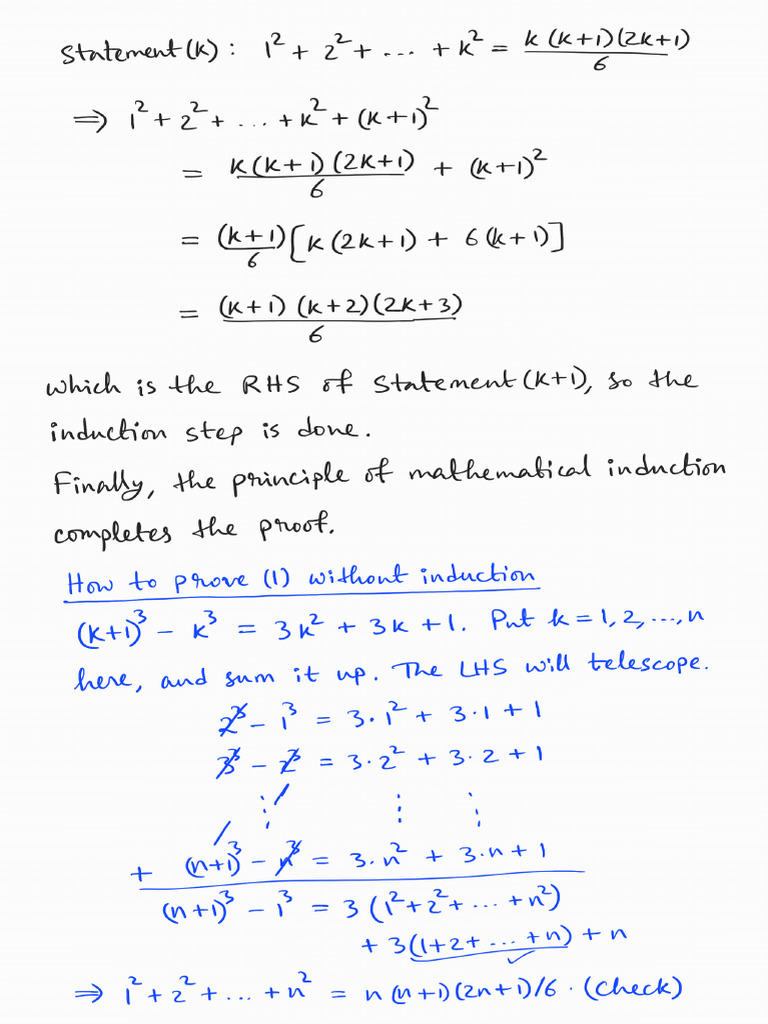 Statement(k): 1² + 2² + ... + k² = k(k+1)(2k+1)/6
⇒ 1² + 2² + ... + k² + (k+1)²
= k(k+1)(2k+1)/6 + (k+1)²
= (k+1)/6 [k(2k+1) + 6(k+1)]
= (k+1)(k+2)(2k+3)/6
which is the RHS of Statement(k+1), so the
induction step is done.
Finally, the principle of mathematical induction
completes the proof.
How to prove (1) without induction
(k+1)³ - k³ = 3k² + 3k + 1. Put k = 1, 2, ..., n
here, and sum it up. The LHS will telescope.
2³ - 1³ = 3·1² + 3·1 + 1
3³ - 2³ = 3·2² + 3·2 + 1
⋮ ⋮ ⋮
+ (n+1)³ - n³ = 3·n² + 3·n + 1
(n+1)³ - 1³ = 3(1² + 2² + ... + n²)
+ 3(1+2+ ... +n) + n
✓
⇒ 1² + 2² + ... + n² = n(n+1)(2n+1)/6. (Check)